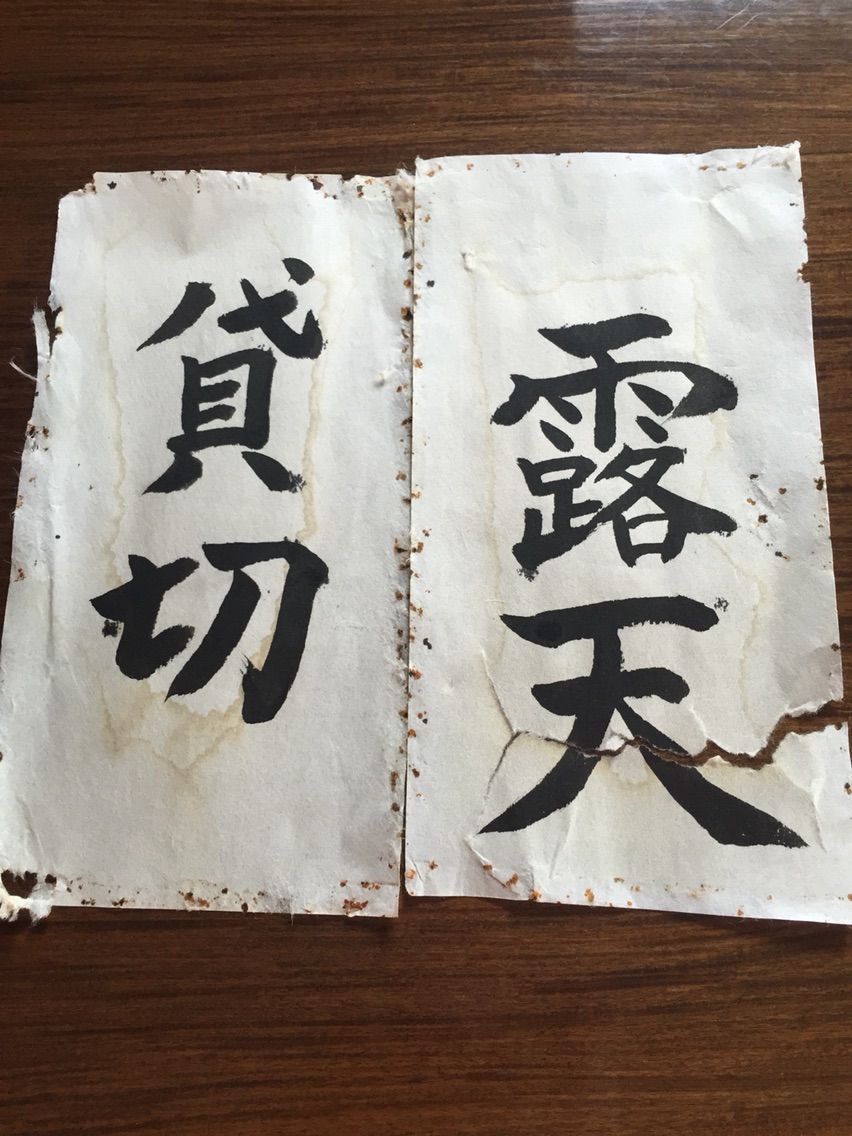 露天
貸切